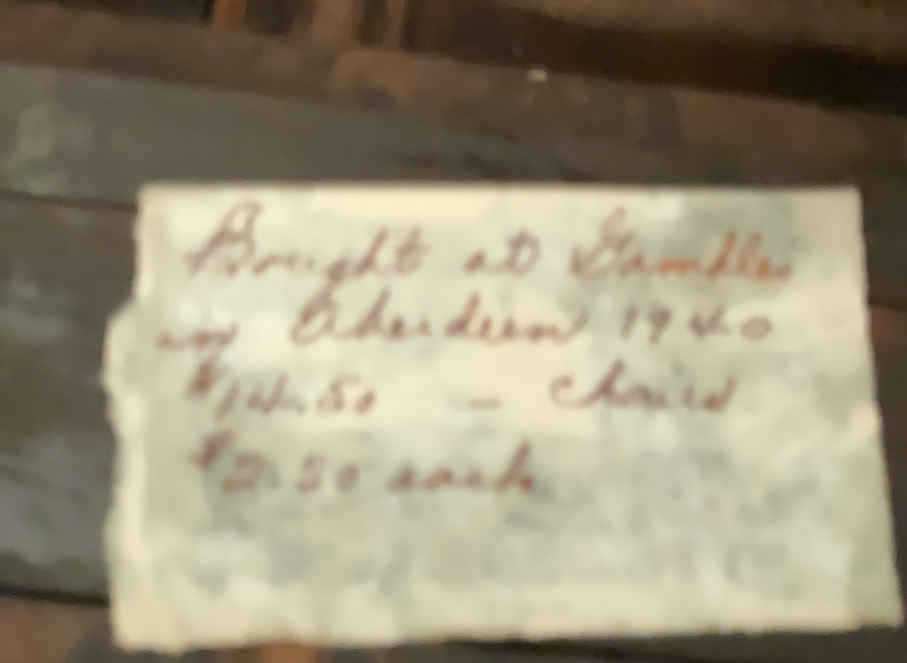 Bought at Gambles
in Aberdeen 1940
$14.50 - Chairs
$2.50 each